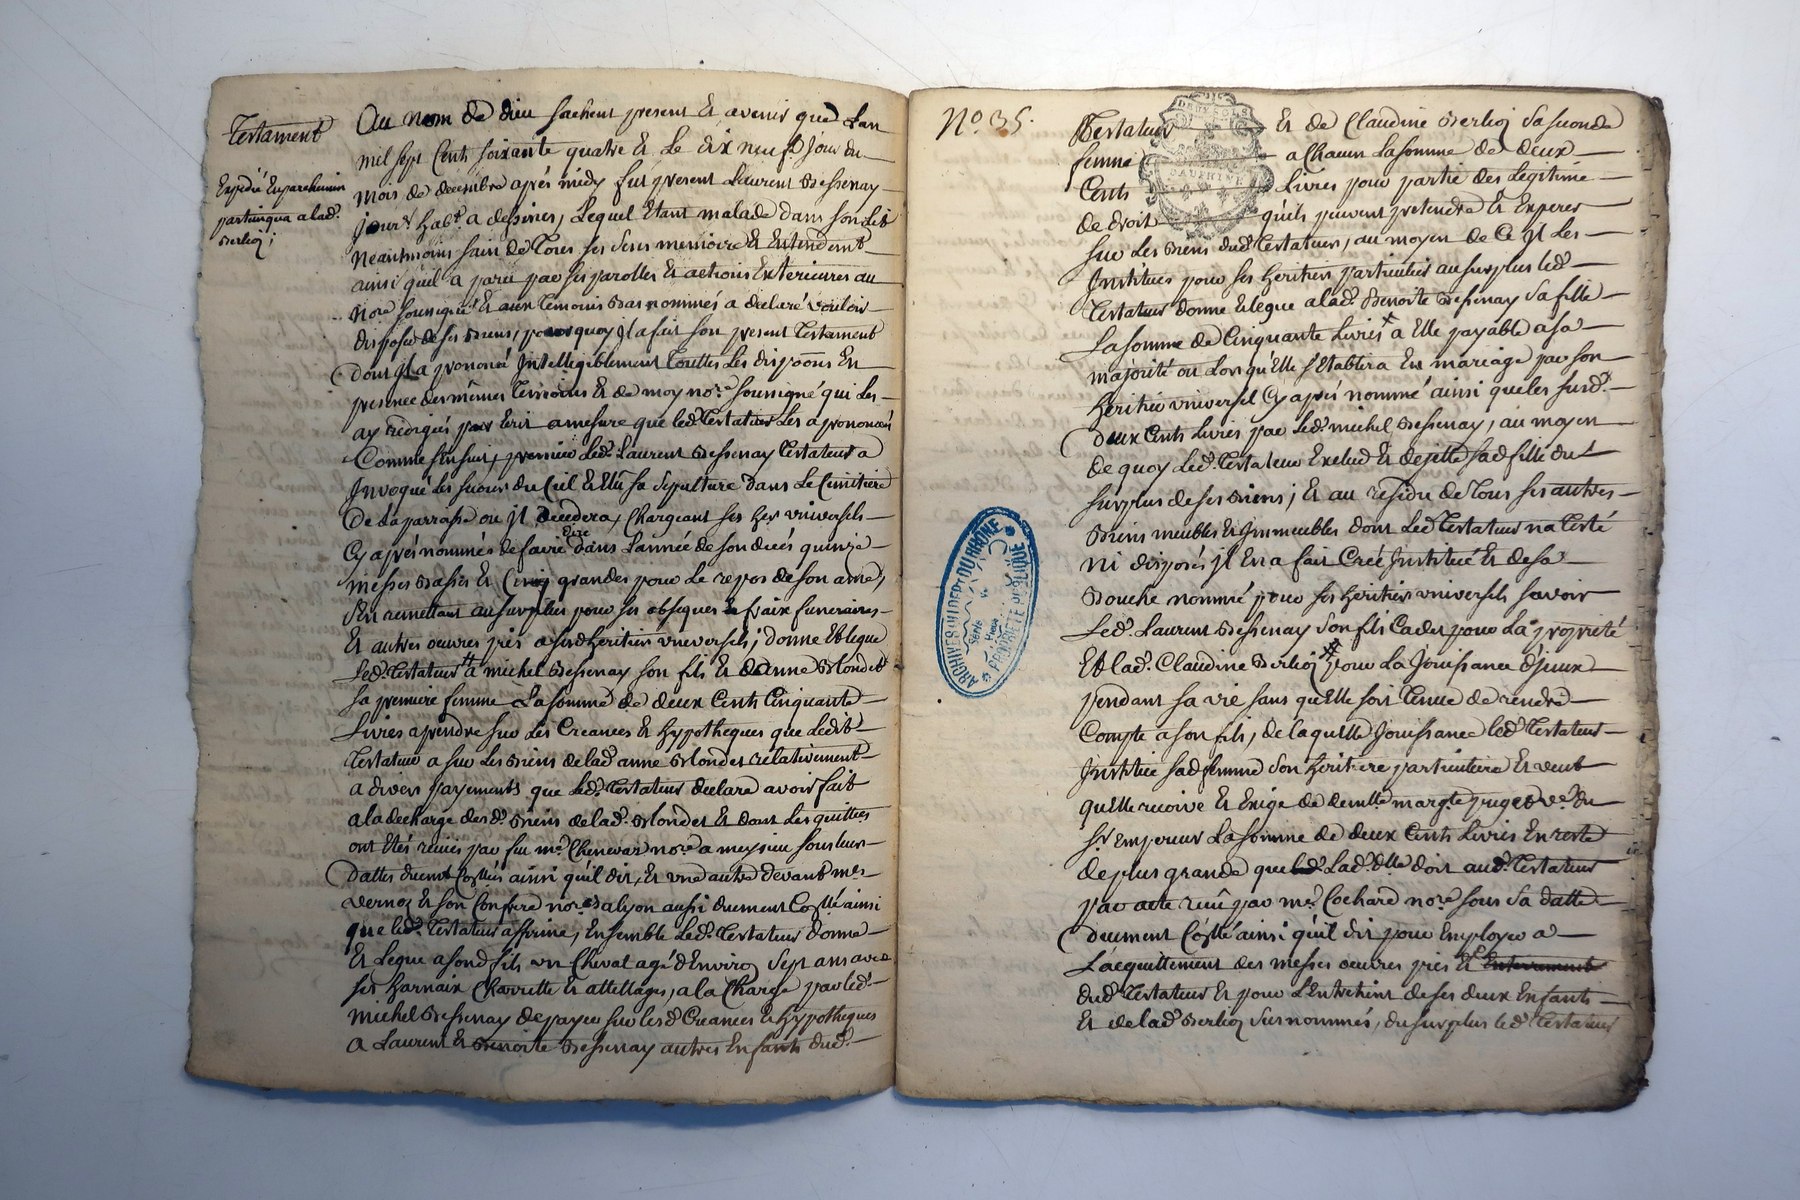 Testament
Expedié En parchemin
partinqua a lad.
Berlioz;
Au nom de dieu sachent present Et avenir que Lan
mil sept Cents soixante quatre Et Le dix neuf Jour du
mois de decembre aprés midy fut present Laurent Bessenay
jour.r hab.t a dessines, Lequel Etant malade dans son Lit
neantmoins sain de Tous ses sens memoire Et Entendem.t
ainsi quil a paru par ses parolles Et actions Exterieures au
No.re soussigné Et aux temoins Bas nommés a declaré vouloir
disposer de ses Biens, pourquoy jl a fait son present Testament
Dont jl a prononcé Intellegiblement Touttes Les dispoons En
presence des mêmes Temoins Et de moy no.re soussigné qui Les
ay redigés par Ecrit amesure que led. Testateur Les a prononcés
Comme sensuit, premier Led. Laurent Bessenay Testateur a
Invoqué Les secours du Ciel Et Elu sa sepulture dans Le Cimitiere
De La parroisse ou jl decedera, Chargeant ses her vniversels
Cy aprés nommés de faire dire dans L'année de son decés quinze
messes Basses Et Cinq grandes pour Le repos de son ame,
s'En remettant au surplus pour ses obseques Et fraix funeraires
Et autres oeuvres pies a sesd heritiers vniversels; donne Et legue
Led. Testateur a michel Bessenay son fils Et danne Blondet
sa premiere femme La somme de deux Cents Cinquante
Livres aprendre sur Les Creances Et hypotheques que Ledit
Testateur a sur Les Biens de lad anne Blondet relativement
a divers payements que Led. Testateur declare avoir fait
a la decharge desd. Biens de lad. Blondet Et dont Les quittces
ont Etés reçuës par feu m.e Chenevar no.re a meysieu sous Leurs
Dattes duemt Coñllées ainsi quil dit, Et vne autre devant m.es
vernoz Et son Confrere no.res a Lyon aussi duement Coñllé ainsi
que led. Testateur affirme, Ensemble Led. Testateur donne
Et Legue a sond fils vn Cheval agé d'Environ Sept ans avec
ses harnaix Charrette Et attellages, a la Charge par led
michel Bessenay de payer sur lesd Creances Et hypotheques
a Laurent Et Benoite Bessenay autres Enfants dud.
N.o 35.
Testateur Et de Claudine Berlioz Sa seconde
femme a Chacun La somme de deux
Cents Livres pour partie des Legitime
de droit qu'ils peuvent pretendre Et Esperer
sur Les Biens dud. Testateur, au moyen de Ce jl Les
Institües pour ses heritiers particuliers au surplus led
Testateur donne Et legue a lad Benoite Bessenay Sa fille
La somme de Cinquante Livres a Elle payable a sa
majorité ou Lorsqu'Elle s'Etablira En mariage par son
heritier vniversel Cy aprés nommé ainsi que les susd.
deux Cents Livres par Led. michel Bessenay, au moyen
de quoy Led. Testateur Exclud Et dejette sad fille du
surplus de ses Biens; Et au residu de Tous ses autres
Biens meubles Et jmmeubles dont Led Testateur na Testé
ni disposés jl En a fait Creé Institué Et de sa
Bouche nommé pour ses heritiers vniversels savoir
Led. Laurent Bessenay son fils Cadet pour La propriété
Et lad. Claudine Berlioz pour La Jouissance djceux
pendant sa vie sans quElle soit Tenue de rendre
Compte a son fils, de laquelle Jouissance led. Testateur
Institüe sad femme son heritiere particuliere Et veut
quElle recoive Et Exige de demlle margte puget v.e du
S.r Empereur La somme de deux Cents Livres En reste
de plus grande que Lad. dlle doit aud. Testateur
par acte recû par m.e Cochard no.re sous Sa datte
duement Coñllé ainsi qu'il dit pour Employer a
L'acquittement des messes oeuvres pies Et Enterrement
dud. Testateur Et pour L'Entretient de ses deux Enfants
Et de lad. Berlioz susnommés, du surplus led. Testateur
ARCHIVES
PROPRIÉTÉ PUBLIQUE